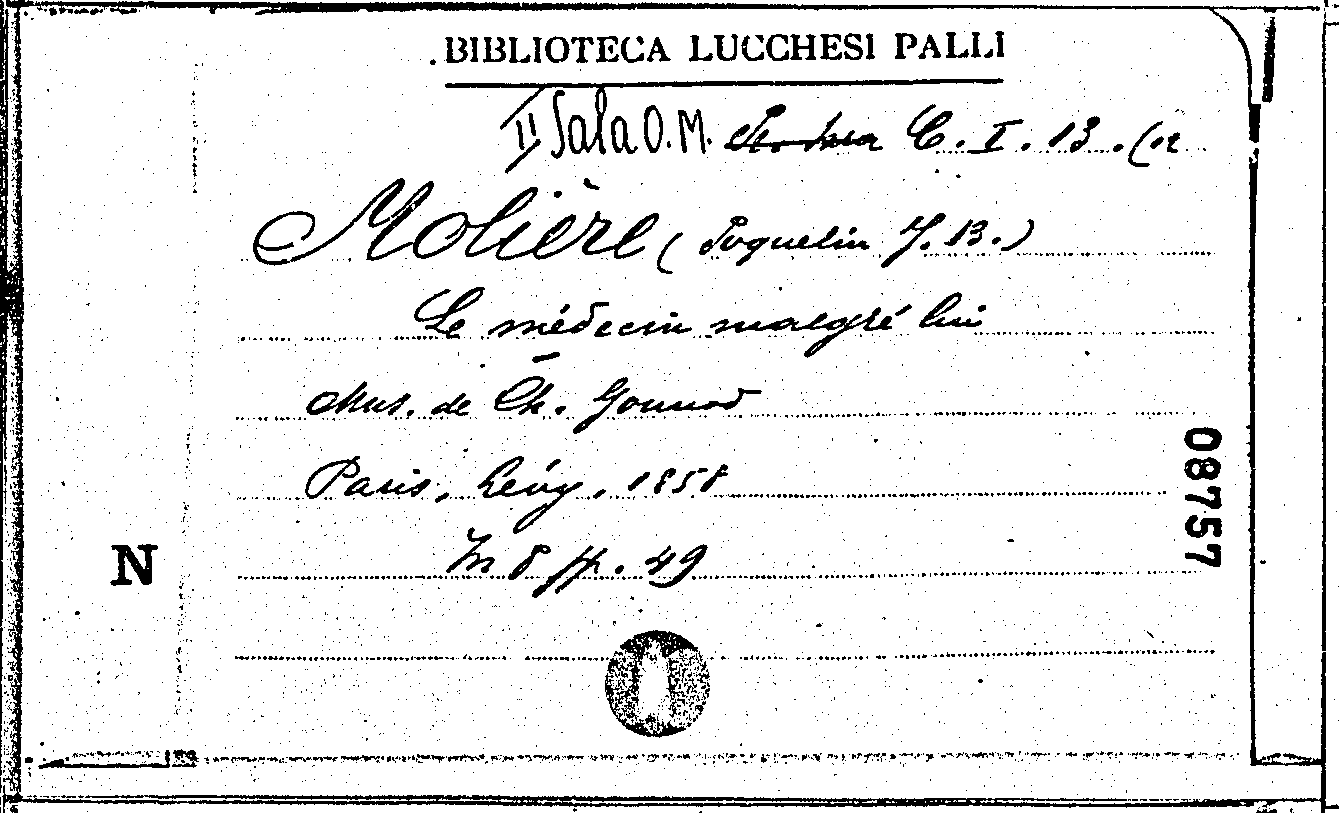 BIBLIOTECA LUCCHESI PALLI
II Sala O. M. C. I. 13. (12
Molière ( Poquelin J. B. )
Le médecin malgré lui
Mus. de Ch. Gounod
Paris, Lévy, 1858
In 8 pp. 49
08757
N